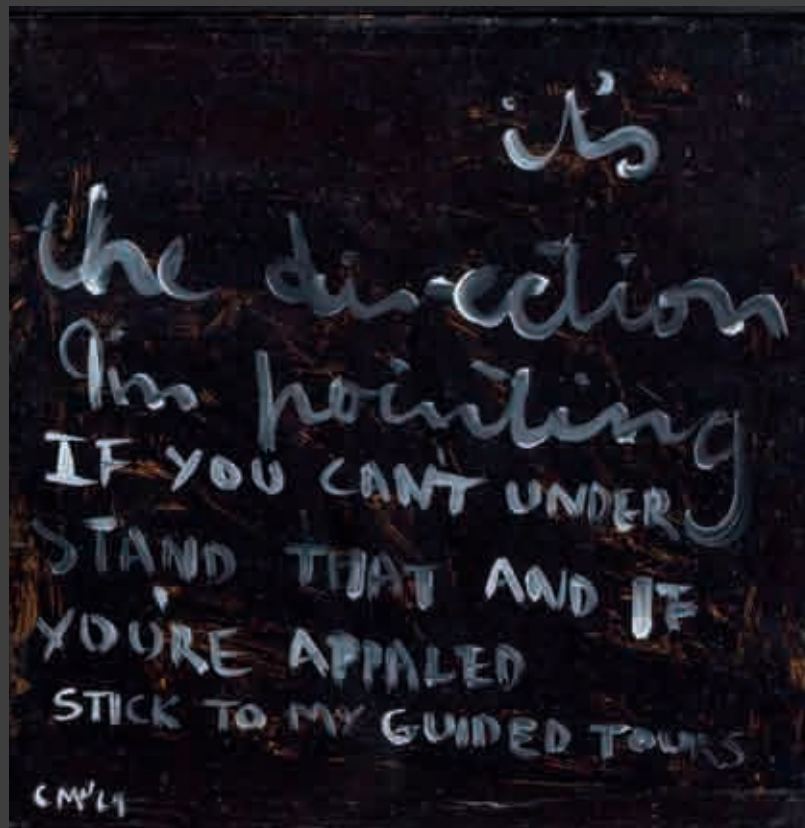 it's
the direction
I'm pointing
IF YOU CAN'T UNDER
STAND THAT AND IF
YOU'RE APPALED
STICK TO MY GUIDED TOURS